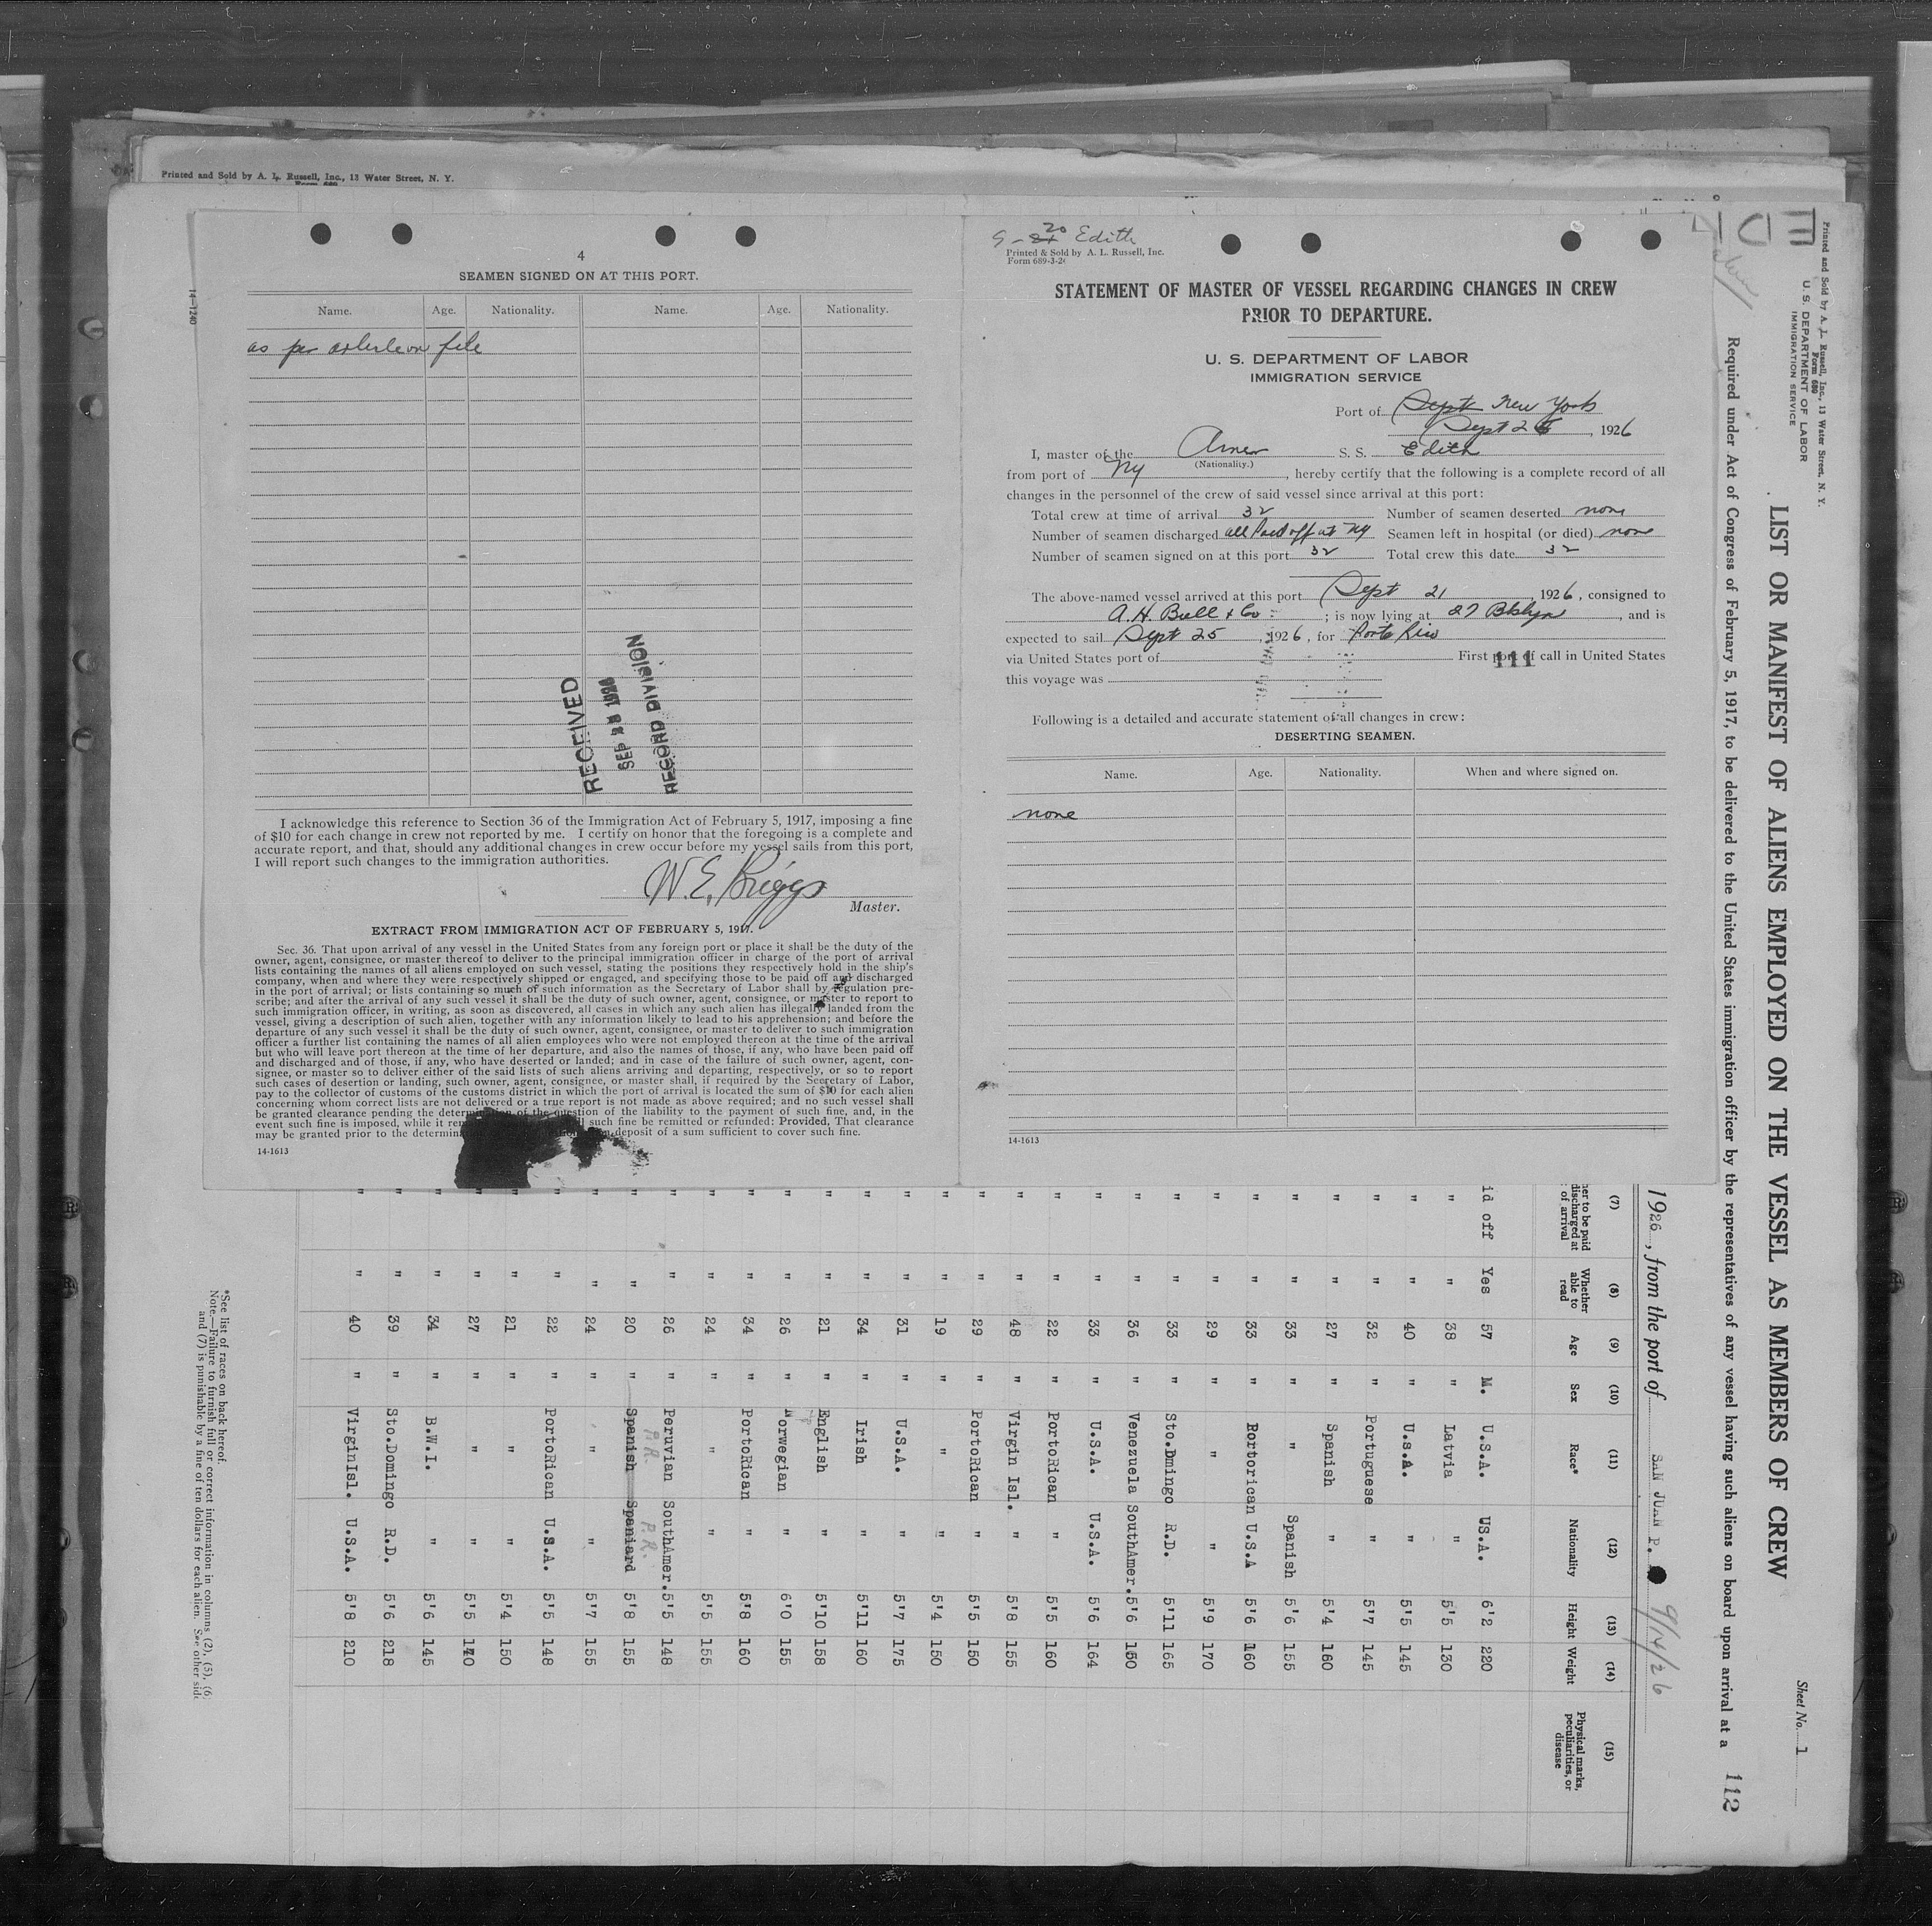 Printed and Sold by A. L. Russell, Inc., 13 Water Street, N. Y.
Form 689
4
SEAMEN SIGNED ON AT THIS PORT.
Name. Age. Nationality. Name. Age. Nationality.
as per file
14-1240
RECEIVED
SEP 1926
RECORD DIVISION
I acknowledge this reference to Section 36 of the Immigration Act of February 5, 1917, imposing a fine
of $10 for each change in crew not reported by me. I certify on honor that the foregoing is a complete and
accurate report, and that, should any additional changes in crew occur before my vessel sails from this port,
I will report such changes to the immigration authorities.
W. E. Briggs
Master.
EXTRACT FROM IMMIGRATION ACT OF FEBRUARY 5, 1917.
Sec. 36. That upon arrival of any vessel in the United States from any foreign port or place it shall be the duty of the
owner, agent, consignee, or master thereof to deliver to the principal immigration officer in charge of the port of arrival
lists containing the names of all aliens employed on such vessel, stating the positions they respectively hold in the ship's
company, when and where they were respectively shipped or engaged, and specifying those to be paid off and discharged
in the port of arrival; or lists containing so much of such information as the Secretary of Labor shall by regulation pre-
scribe; and after the arrival of any such vessel it shall be the duty of such owner, agent, consignee, or master to report to
such immigration officer, in writing, as soon as discovered, all cases in which any such alien has illegally landed from the
vessel, giving a description of such alien, together with any information likely to lead to his apprehension; and before the
departure of any such vessel it shall be the duty of such owner, agent, consignee, or master to deliver to such immigration
officer a further list containing the names of all alien employees who were not employed thereon at the time of the arrival
but who will leave port thereon at the time of her departure, and also the names of those, if any, who have been paid off
and discharged and of those, if any, who have deserted or landed; and in case of the failure of such owner, agent, con-
signee, or master so to deliver either of the said lists of such aliens arriving and departing, respectively, or so to report
such cases of desertion or landing, such owner, agent, consignee, or master shall, if required by the Secretary of Labor,
pay to the collector of customs of the customs district in which the port of arrival is located the sum of $10 for each alien
concerning whom correct lists are not delivered or a true report is not made as above required; and no such vessel shall
be granted clearance pending the determination of the question of the liability to the payment of such fine, and, in the
event such fine is imposed, while it such fine be remitted or refunded: Provided, That clearance
may be granted prior to the deposit of a sum sufficient to cover such fine.
14-1613
9-20 Edith
Printed & Sold by A. L. Russell, Inc.
Form 689-3-26
STATEMENT OF MASTER OF VESSEL REGARDING CHANGES IN CREW
PRIOR TO DEPARTURE.
U. S. DEPARTMENT OF LABOR
IMMIGRATION SERVICE
Port of Sept New York
Sept 2 , 1926
I, master of the Amer S. S. Edith
(Nationality.)
from port of Ny , hereby certify that the following is a complete record of all
changes in the personnel of the crew of said vessel since arrival at this port:
Total crew at time of arrival 32 Number of seamen deserted none
Number of seamen discharged all Paid off at Ny Seamen left in hospital (or died) none
Number of seamen signed on at this port 32 Total crew this date 32
The above-named vessel arrived at this port Sept 21 , 1926, consigned to
A. H. Bull & Co ; is now lying at 27 Bklyn , and is
expected to sail Sept 25 , 1926, for Porto Rico
via United States port of First port of call in United States
111
this voyage was
Following is a detailed and accurate statement of all changes in crew:
DESERTING SEAMEN.
Name. Age. Nationality. When and where signed on.
none
14-1613
Printed and Sold by A. L. Russell, Inc., 13 Water Street, N. Y.
Form 680
U. S. DEPARTMENT OF LABOR
IMMIGRATION SERVICE
Sheet No. 1
LIST OR MANIFEST OF ALIENS EMPLOYED ON THE VESSEL AS MEMBERS OF CREW
Required under Act of Congress of February 5, 1917, to be delivered to the United States immigration officer by the representatives of any vessel having such aliens on board upon arrival at a
112
1926, from the port of SAN JUAN P. 9/14/26
(7) (8) (9) (10) (11) (12) (13) (14) (15)
her to be paid discharged at of arrival Whether able to read Age Sex Race* Nationality Height Weight Physical marks, peculiarities, or disease
id off Yes 57 M. U.S.A. US.A. 6'2 220
" " 38 " Latvia " 5'5 130
" " 40 " U.S.A. " 5'5 145
" " 32 " Portuguese " 5'7 145
" " 27 " Spanish " 5'4 160
" " 33 " " Spanish 5'6 155
" " 33 " Portorican U.S.A 5'6 160
" " 29 " " " 5'9 170
" " 33 " Sto.Dmingo R.D. 5'11 165
" " 36 " Venezuela SouthAmer. 5'6 150
" " 33 " U.S.A. U.S.A. 5'6 164
" " 22 " PortoRican " 5'5 160
" " 48 " Virgin Isl. " 5'8 155
" " 29 " PortoRican " 5'5 150
" " 19 " " " 5'4 150
" " 31 " U.S.A. " 5'7 175
" " 34 " Irish " 5'11 160
" " 21 " English " 5'10 158
" " 26 " Norwegian " 6'0 155
" " 34 " PortoRican " 5'8 160
" " 24 " " " 5'5 155
" " 26 " Peruvian SouthAmer. 5'5 148
P.R. P.R.
" " 20 " Spanish Spaniard 5'8 155
" " 24 " " " 5'7 155
" " 22 " PortoRican U.S.A. 5'5 148
" " 21 " " " 5'4 150
" " 27 " " " 5'5 140
" " 34 " B.W.I. " 5'6 145
" " 39 " Sto.Domingo R.D. 5'6 218
" " 40 " VirginIsl. U.S.A. 5'8 210
*See list of races on back hereof.
Note.—Failure to furnish full or correct information in columns (2), (5), (6)
and (7) is punishable by a fine of ten dollars for each alien. See other side